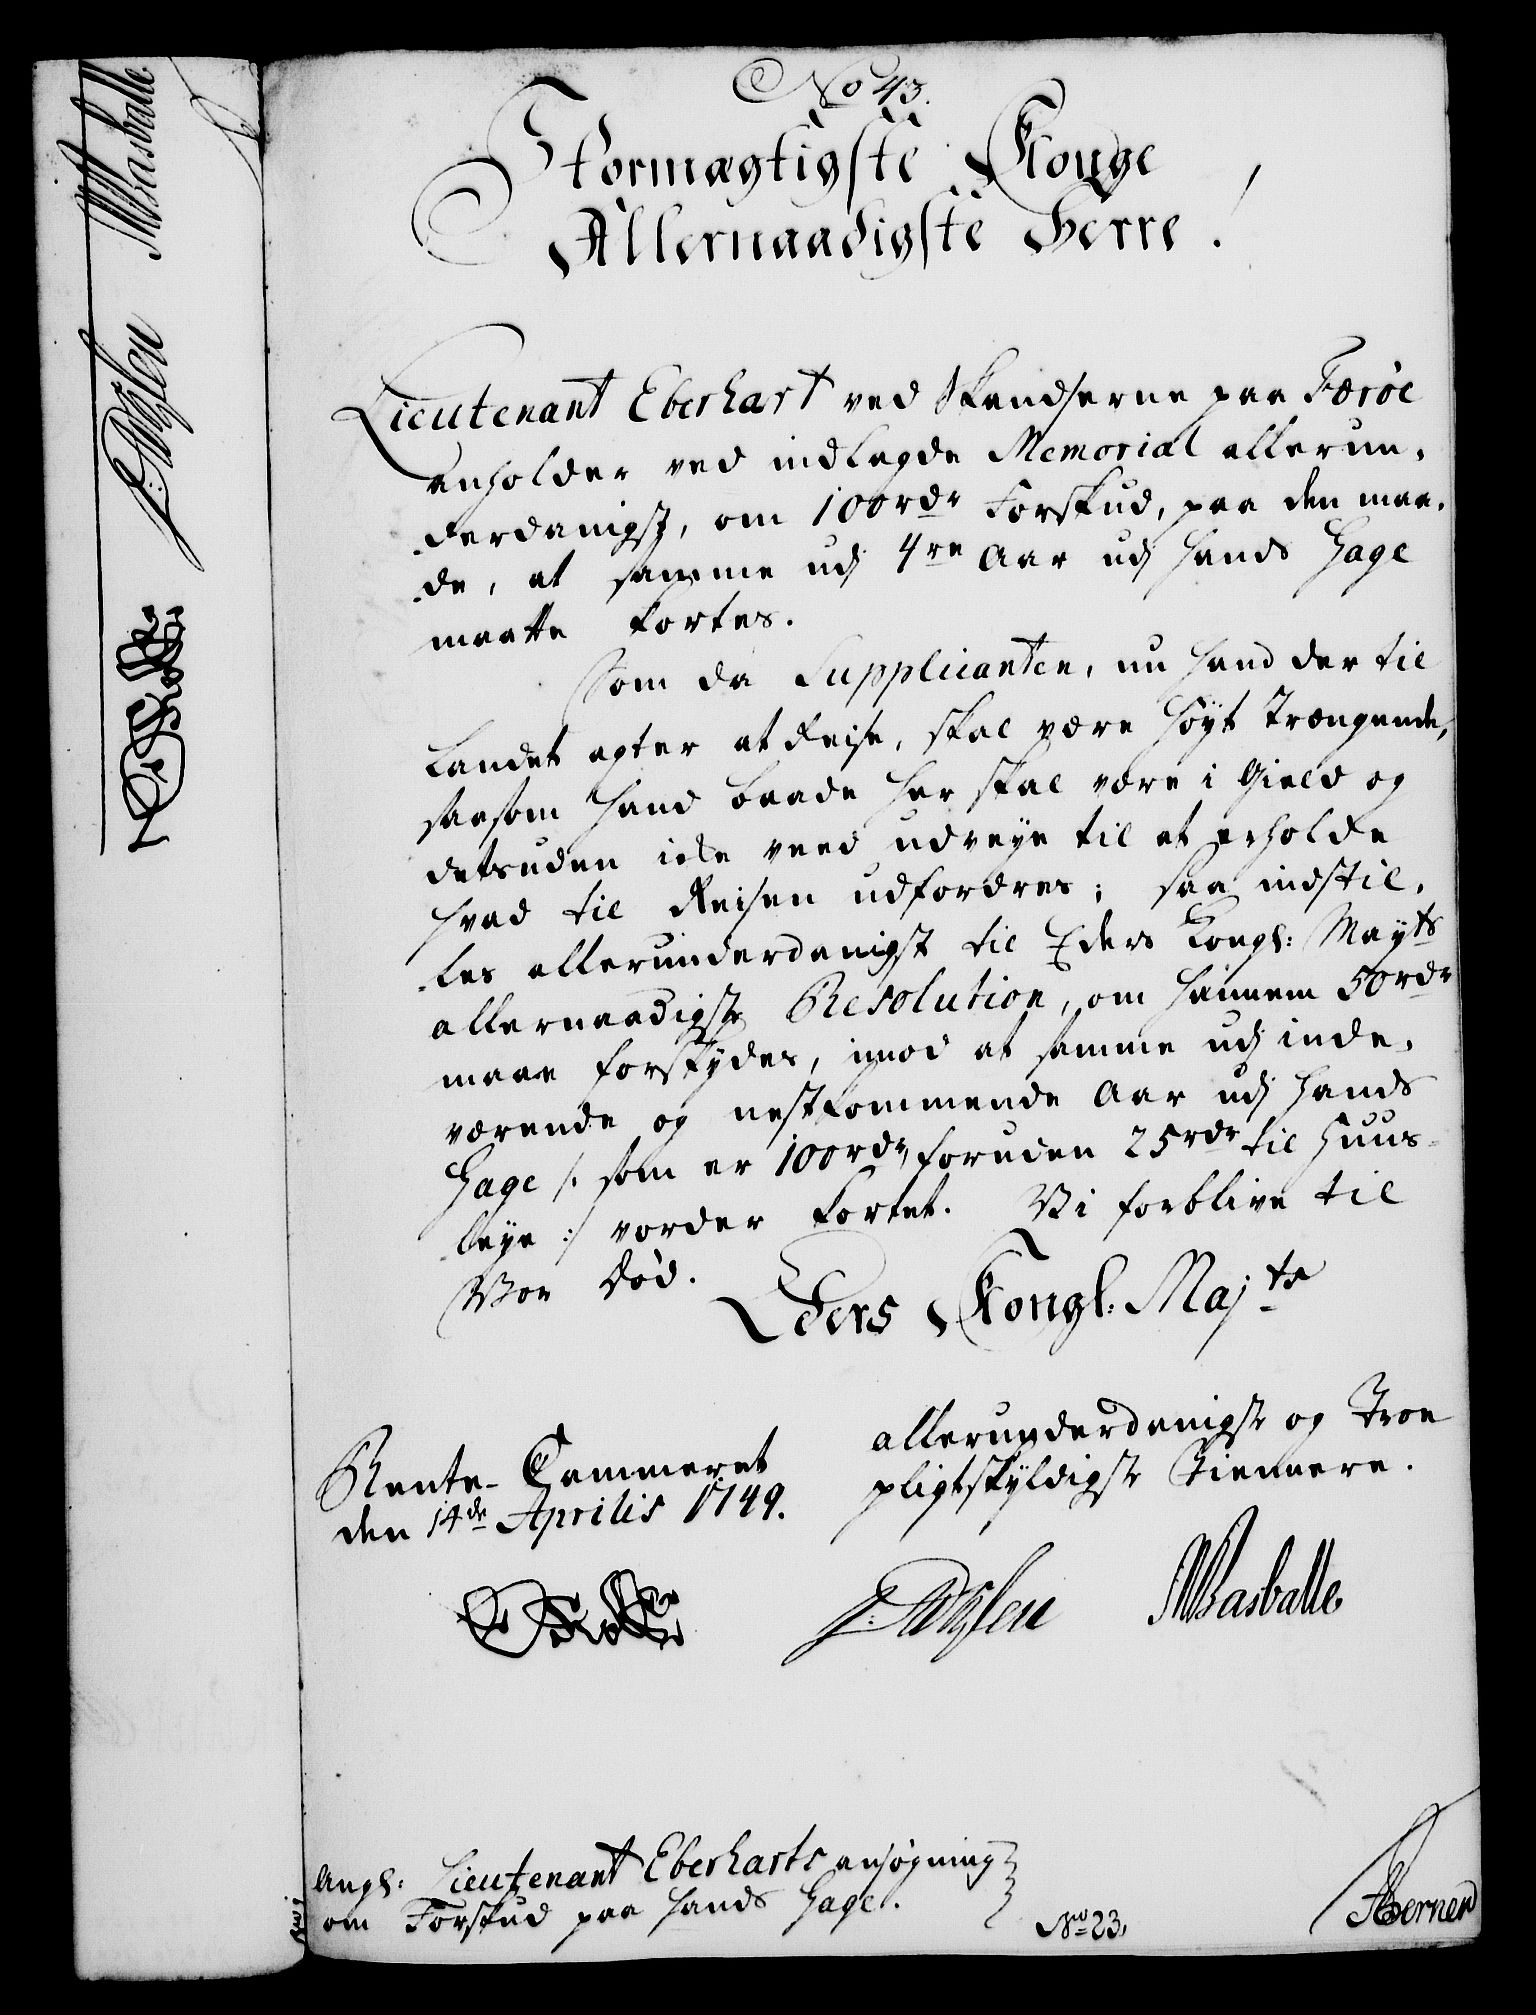 No 43.
Stormægtigste Konge
Allernaadigste Herre!
Lieutenant Eberhart ved Skandserne paa Færøe
anholder ved indlagde Memorial allerun-
derdanigst, om 100 rdr Forskud, paa den maa-
de, at samme udj 4re Aar udj hands Gage
maatte kortes.
Som da Supplicanten, nu hand der til
Landet agter at Reise, skal være høyt trængende,
saasom hand baade her skal være i Gield og
detsuden icke veed udveye til at erholde
hvad til Reisen udfordres; saa indstil-
les allerunderdanigst til Eders Kongl: Mayts
allernaadigste Resolution, om hannem 50 rdr
maae forskydes, imod at samme udj inde-
værende og nestkommende Aar udj hands
Gage /: som er 100 rdr, foruden 25 rdr til Huus-
leye :/ vorder kortet. Vi forblive til
Vor Død.
Eders Kongl: Majts
allerunderdanigste og Troe
pligtskyldigste Tiennere.
Rente-Cammeret
den 14de Aprilis 1749.
Basballe
Angl: Lieutenant Eberharts ansøgning
om Forskud paa hands Gage.
No 23.